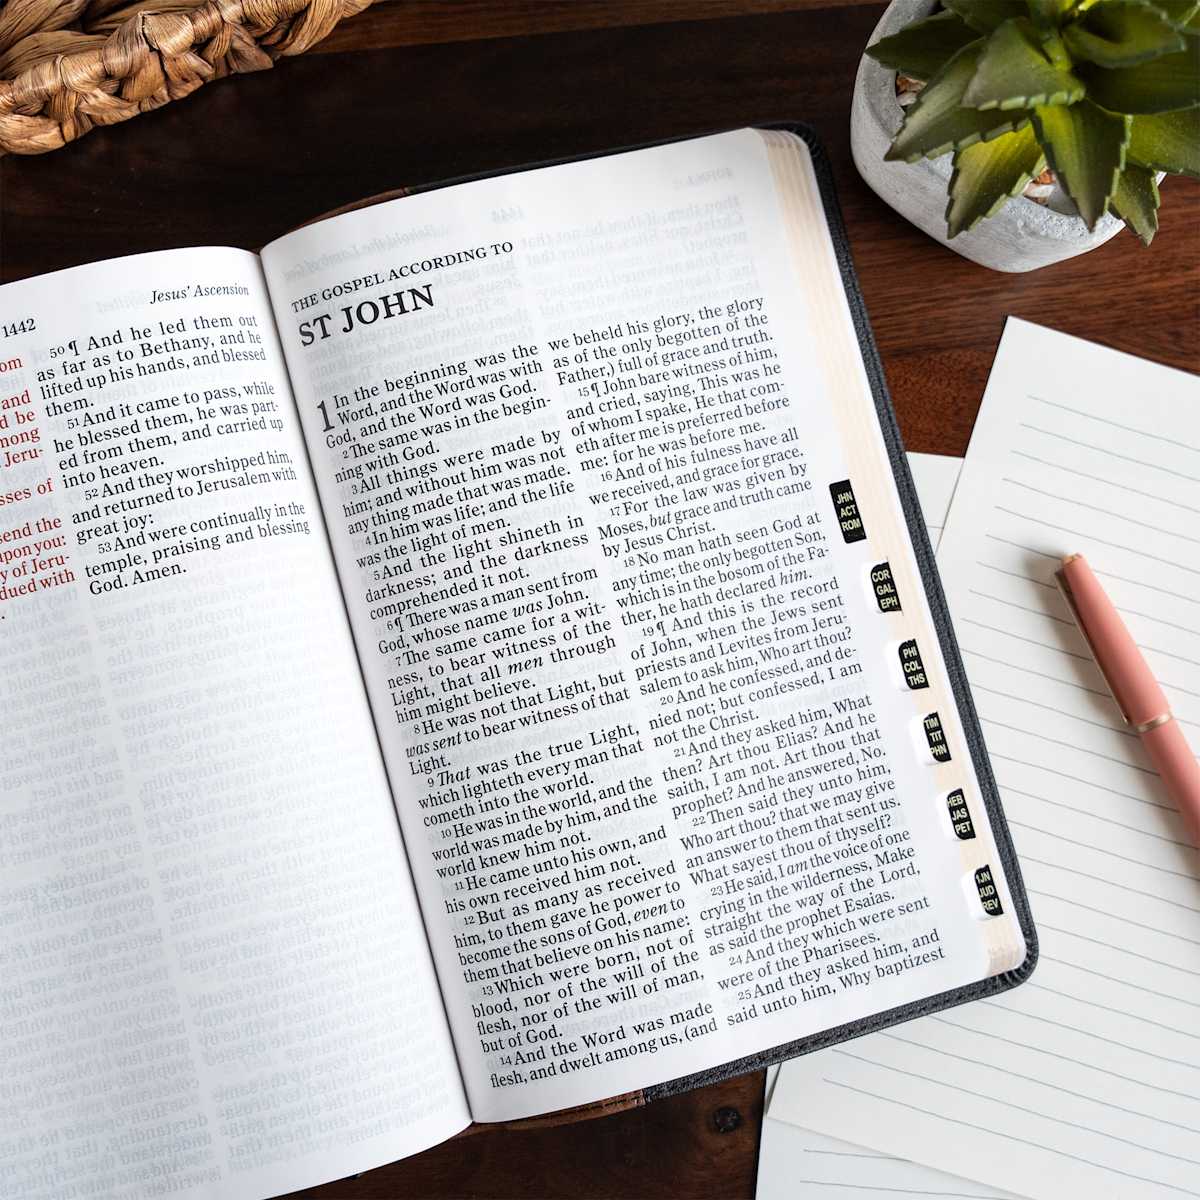 1442
Jesus' Ascension
and
d be
mong
Jeru-
sses of
send the
upon you:
y of Jeru-
dued with
50 ¶ And he led them out
as far as to Bethany, and he
lifted up his hands, and blessed
them.
51 And it came to pass, while
he blessed them, he was part-
ed from them, and carried up
into heaven.
52 And they worshipped him,
and returned to Jerusalem with
great joy:
53 And were continually in the
temple, praising and blessing
God. Amen.
THE GOSPEL ACCORDING TO
ST JOHN
1 In the beginning was the
Word, and the Word was with
God, and the Word was God.
2 The same was in the begin-
ning with God.
3 All things were made by
him; and without him was not
any thing made that was made.
4 In him was life; and the life
was the light of men.
5 And the light shineth in
darkness; and the darkness
comprehended it not.
6 ¶ There was a man sent from
God, whose name was John.
7 The same came for a wit-
ness, to bear witness of the
Light, that all men through
him might believe.
8 He was not that Light, but
was sent to bear witness of that
Light.
9 That was the true Light,
which lighteth every man that
cometh into the world.
10 He was in the world, and the
world was made by him, and the
world knew him not.
11 He came unto his own, and
his own received him not.
12 But as many as received
him, to them gave he power to
become the sons of God, even to
them that believe on his name:
13 Which were born, not of
blood, nor of the will of the
flesh, nor of the will of man,
but of God.
14 And the Word was made
flesh, and dwelt among us, (and
we beheld his glory, the glory
as of the only begotten of the
Father,) full of grace and truth.
15 ¶ John bare witness of him,
and cried, saying, This was he
of whom I spake, He that com-
eth after me is preferred before
me: for he was before me.
16 And of his fulness have all
we received, and grace for grace.
17 For the law was given by
Moses, but grace and truth came
by Jesus Christ.
18 No man hath seen God at
any time; the only begotten Son,
which is in the bosom of the Fa-
ther, he hath declared him.
19 ¶ And this is the record
of John, when the Jews sent
priests and Levites from Jeru-
salem to ask him, Who art thou?
20 And he confessed, and de-
nied not; but confessed, I am
not the Christ.
21 And they asked him, What
then? Art thou Elias? And he
saith, I am not. Art thou that
prophet? And he answered, No.
22 Then said they unto him,
Who art thou? that we may give
an answer to them that sent us.
What sayest thou of thyself?
23 He said, I am the voice of one
crying in the wilderness, Make
straight the way of the Lord,
as said the prophet Esaias.
24 And they which were sent
were of the Pharisees.
25 And they asked him, and
said unto him, Why baptizest
JHN
ACT
ROM
COR
GAL
EPH
PHI
COL
THS
TIM
TIT
PHN
HEB
JAS
PET
1JN
JUD
REV